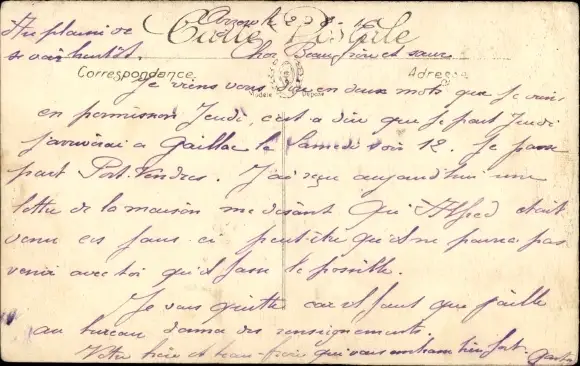 Au plaisir de
se voir bientôt.
Carte Postale
Cher Beau frère et sœur
Correspondance
Adresse
Je viens vous dire en deux mots que je viens
en permission Jeudi, c'est a dire que je part Jeudi
j'arriverai a Gaillac le Samedi soir 12. Je passe
part Port-Vendres. J'ai reçu aujourd'hui une
lettre de la maison me disant qu'Alfred etait
venu ces jours ci peut être qu'il ne pourra pas
venir avec toi qu'il fasse le possible.
Je vous quitte car il faut que j'aille
au bureau donner des renseignements.
Votre frère et beau-frère qui vous embrasse bien fort.